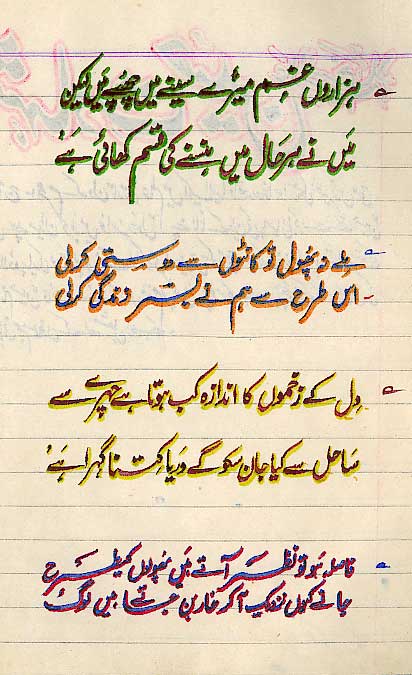 ہزاروں غم میرے سینے میں چھپے ہیں لیکن
میں نے ہر حال میں ہنسنے کی قسم کھائی ہے
ملے نہ پھول تو کانٹوں سے دوستی کرلی
اس طرح سے ہم نے بسر زندگی کرلی
دل کے زخموں کا اندازہ کب ہوتا ہے چہرے سے
ساحل سے کیا جان سکو گے دریا کتنا گہرا ہے
فاصلہ ہو تو نظر آتے ہیں پھولوں کیطرح
جانے کیوں نزدیک آکر خار بن جاتے ہیں لوگ